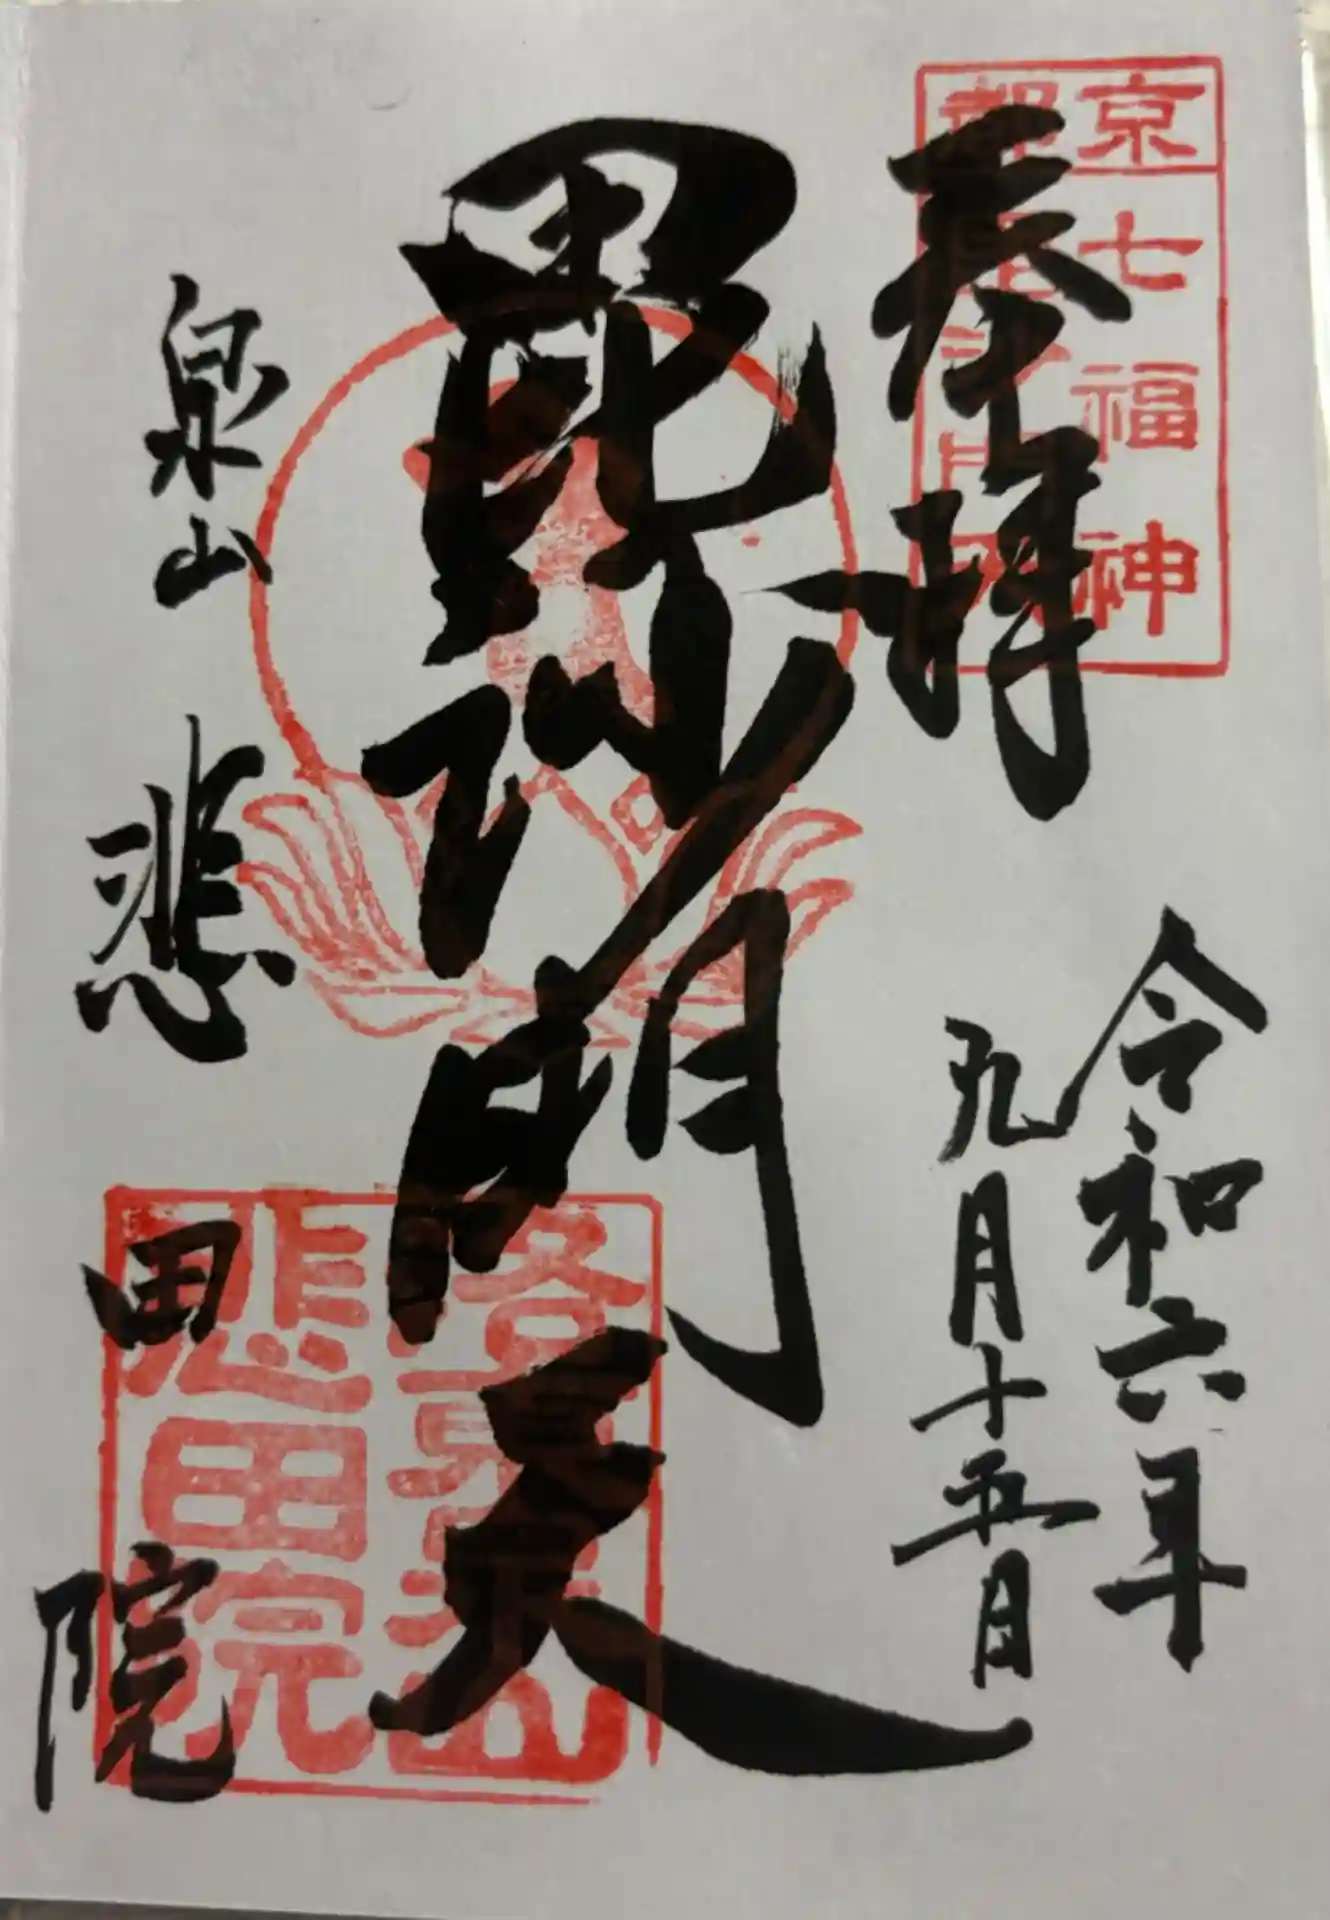 奉拝
京 七福神
令和六年
九月十五日
毘沙門天
泉山 悲田院
洛東泉山
悲田院